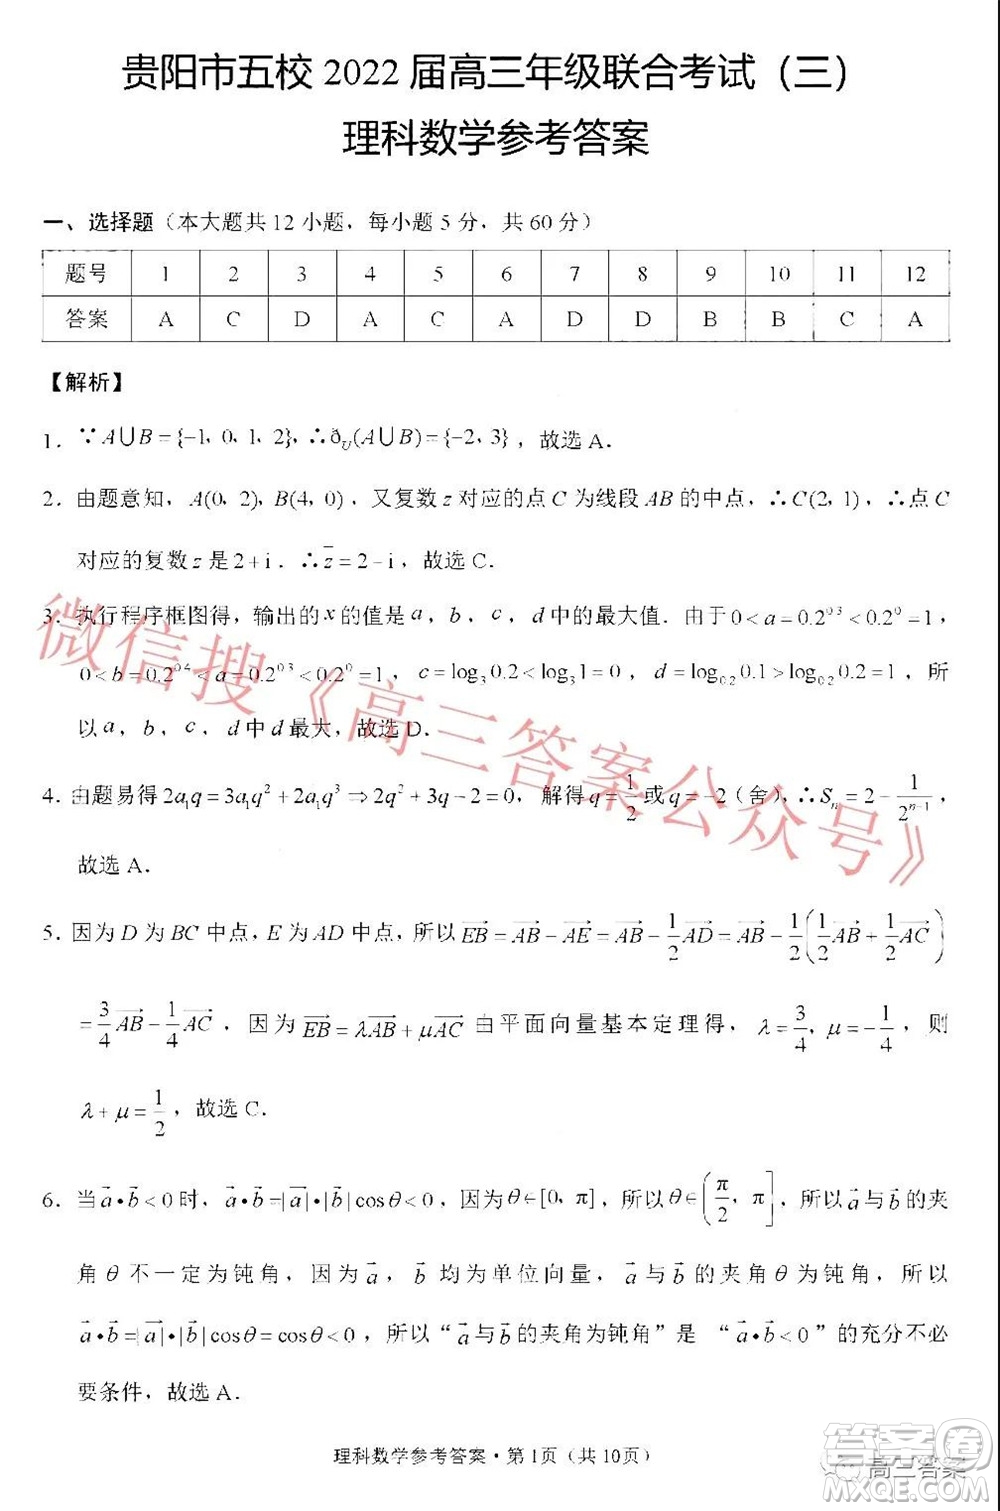 贵阳市五校 2022 届高三年级联合考试（三）
理科数学参考答案
一、选择题（本大题共 12 小题，每小题 5 分，共 60 分）
题号 1 2 3 4 5 6 7 8 9 10 11 12
答案 A C D A C A D D B B C A
【解析】
1．∵A∪B={-1，0，1，2}，∴ð_U(A∪B)={-2，3}，故选 A．
2．由题意知，A(0，2)，B(4，0)，又复数 z 对应的点 C 为线段 AB 的中点，∴C(2，1)，∴点 C
对应的复数 z 是 2+i．∴z̄=2-i，故选 C．
3．执行程序框图得，输出的 x 的值是 a，b，c，d 中的最大值．由于 0<a=0.2^{0.3}<0.2^0=1，
0<b=0.2^{0.4}<a=0.2^{0.3}<0.2^0=1，c=log_3 0.2<log_3 1=0，d=log_{0.2} 0.1>log_{0.2} 0.2=1，所
以 a，b，c，d 中 d 最大，故选 D．
4．由题易得 2a_1q=3a_1q^2+2a_1q^3⇒2q^2+3q-2=0，解得 q=1/2 或 q=-2（舍），∴S_n=2-1/2^{n-1}，
故选 A．
5．因为 D 为 BC 中点，E 为 AD 中点，所以 EB→=AB→-AE→=AB→-1/2AD→=AB→-1/2(1/2AB→+1/2AC→)
=3/4AB→-1/4AC→，因为 EB→=λAB→+μAC→ 由平面向量基本定理得，λ=3/4，μ=-1/4，则
λ+μ=1/2，故选 C．
6．当 a→•b→<0 时，a→•b→=|a→|•|b→|cosθ<0，因为 θ∈[0，π]，所以 θ∈(π/2，π]，所以 a→ 与 b→ 的夹
角 θ 不一定为钝角，因为 a→，b→ 均为单位向量，a→ 与 b→ 的夹角为钝角，所以
a→•b→=|a→|•|b→|cosθ=cosθ<0，所以“a→ 与 b→ 的夹角为钝角”是 “a→•b→<0 ”的充分不必
要条件，故选 A．
微信搜《高三答案公众号》
理科数学参考答案·第 1 页（共 10 页）
答案卷
高三答案